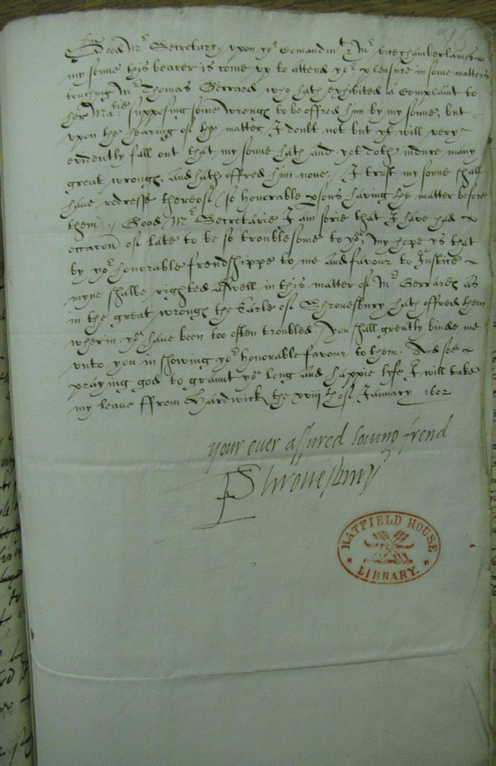 Good Mr Secretary, upon yor comandmt & Mr vicechamberlaines
my sonne this bearer is come up to attend yor pleasure in some matters
touching Mr Thomas Gerrard who hath exhibited a complaint to
her Matie supposing some wronge to be offred him by my sonne, but
upon the hearing of the matter I doubt not but yt will very
evidently fall out that my sonne hath and yet doth indure many
great wronges, and hath offred him none. I trust my sonne shall
have redresse thereof so honorable psons having the matter before
them. Good Mr Secretarie I am sorie that I have had
occacon of late to be so troublesome to yow. My hope ys that
by yor honorable frendshippe to me and favour to Justice
myne shalbe righted aswell in this matter of Mr Gerrards as
in the great wronge the Earle of Shrouesbury hath offred them
wherin yow have been too often troubled. You shall greatly binde me
unto you in showing yor honorable favour to them. And soe
praying god to graunt yow long and happie lyfe I will take
my leave ffrom Hardwick the xviijth of January 1602
your ever assured loving frend
EShrouesbury
HATFIELD HOUSE
LIBRARY.